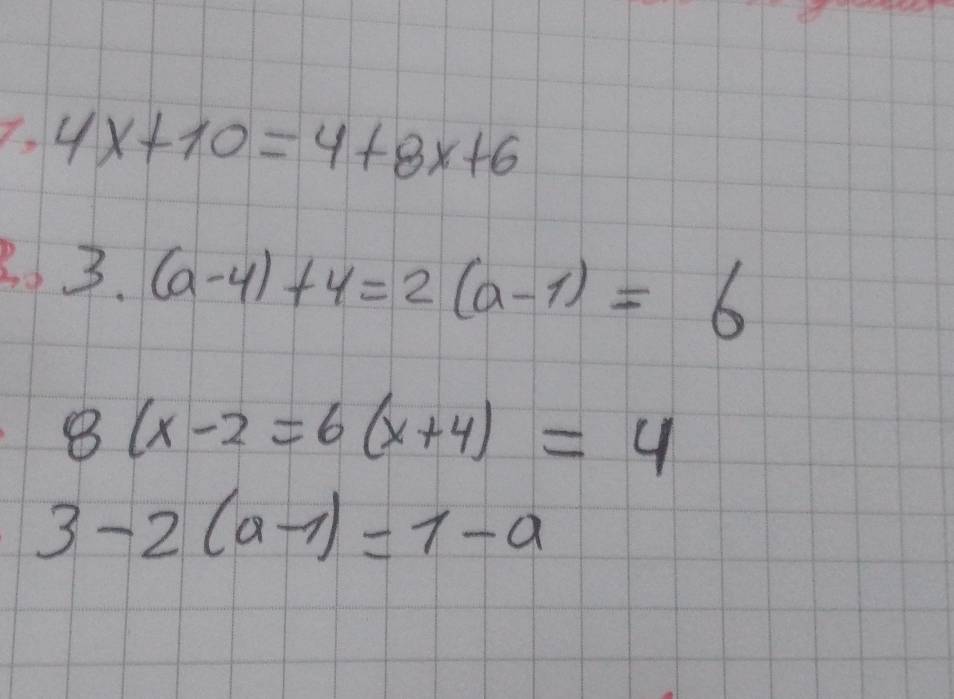 1. 4x+10=4+8x+6
2. 3.(a-4)+4=2(a-1) = 6
8(x-2=6(x+4) = 4
3-2(a-1)=1-a